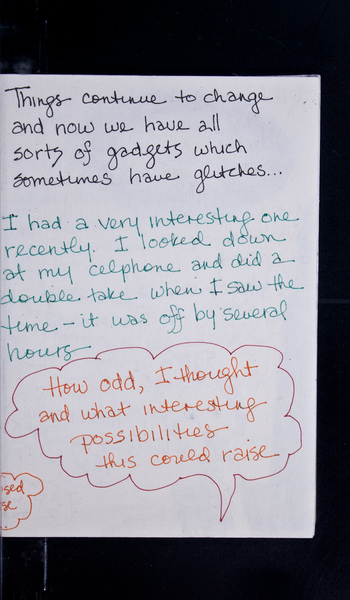 Things continue to change
and now we have all
sorts of gadgets which
sometimes have glitches...
I had a very interesting one
recently. I looked down
at my celphone and did a
double take when I saw the
time - it was off by several
hours
How odd, I thought
and what interesting
possibilities
this could raise